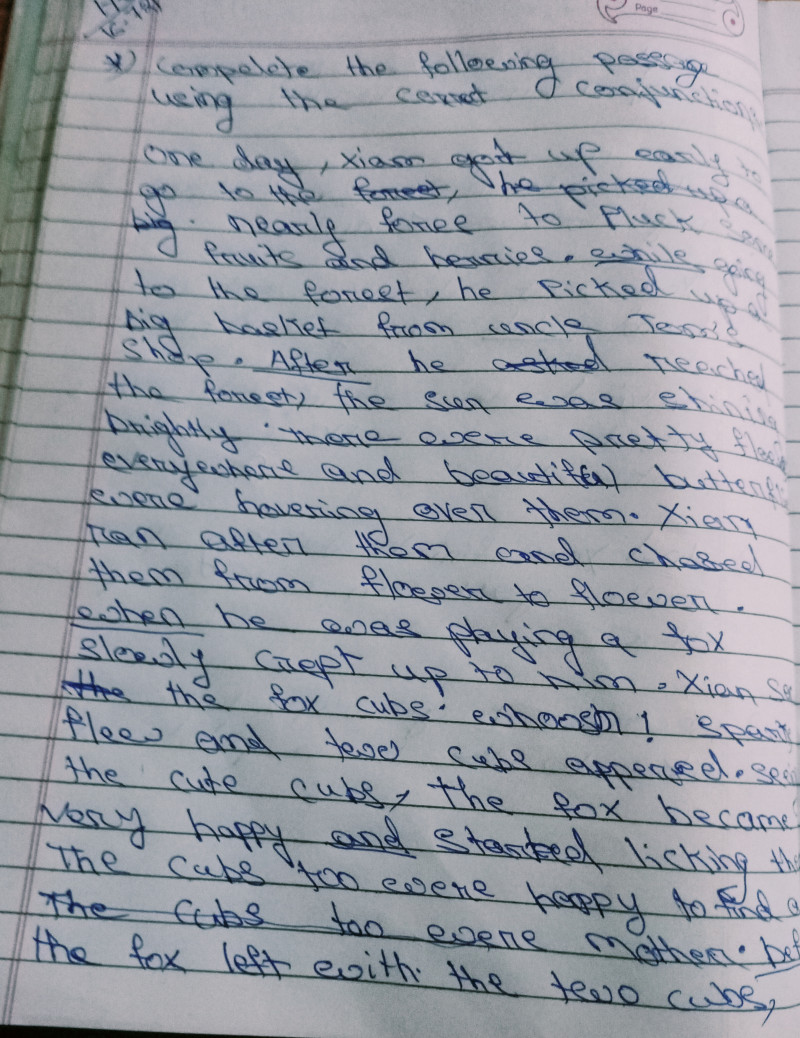 Page
*) Compelete the following passage
using the corret conjunction
One day, Xiam got up early to
go to the forest, he picked up a
big. nearly forest to Pluck
fruits and berries. while going
to the forest, he Picked up a
big basket from uncle Tom's
shop. After he asked reached
the forest, the sun was shining
brightly. there were pretty
everywhere and beautiful
were hovering over them. Xiam
ran after them and chased
them from flower to flower.
when he was playing a fox
slowly crept up to him. Xian
the the fox cubs. whoosh!
flew and two cubs appered.
the cute cubs, the fox became
very happy and started licking
The cubs too were happy to find a
The cubs too were mother.
the fox left with the two cubs,